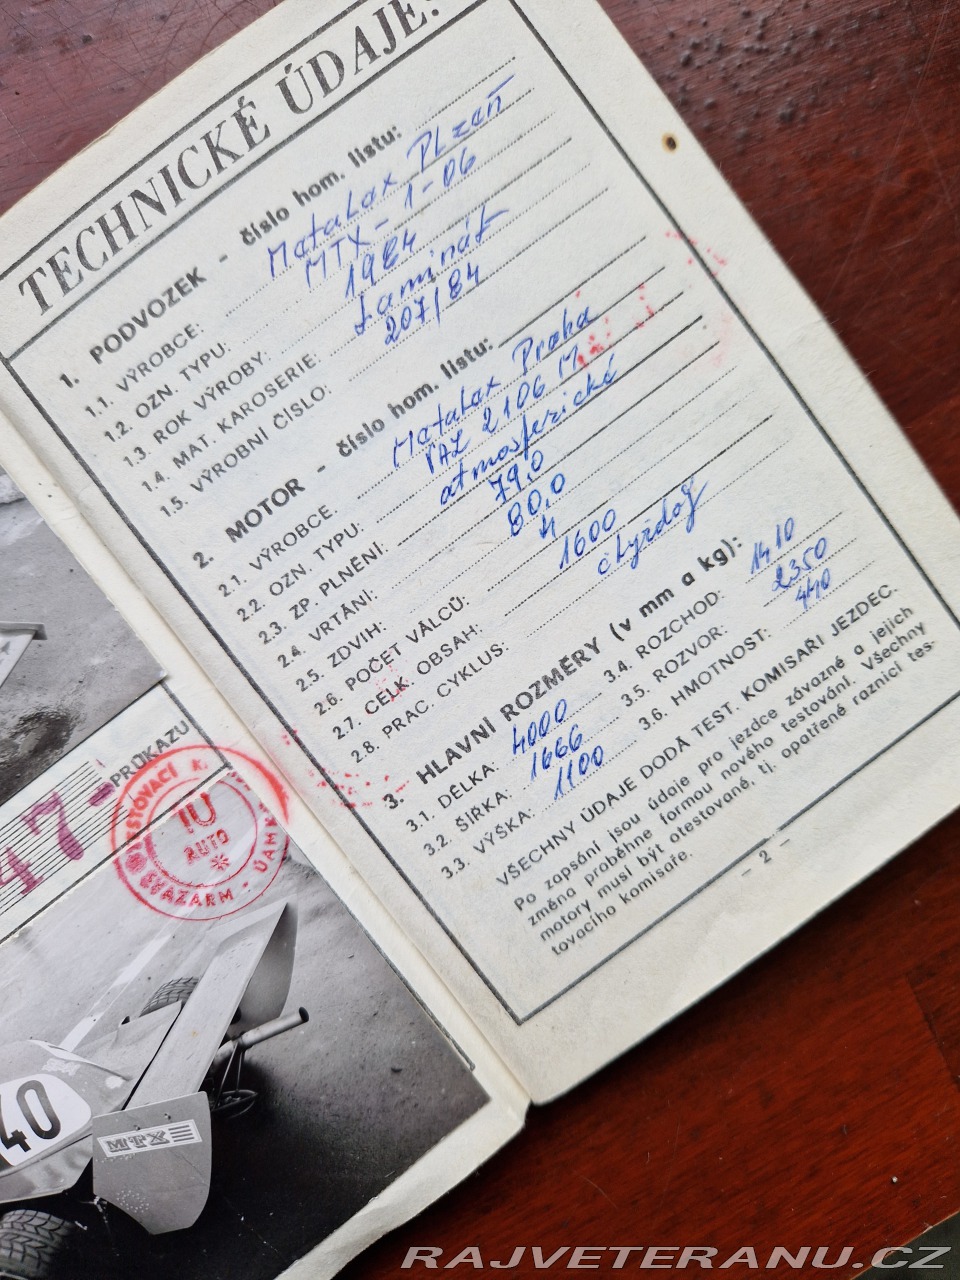 TECHNICKÉ ÚDAJE:
1. PODVOZEK - číslo hom. listu:
1.1. VÝROBCE: Metalex Plzeň
1.2. OZN. TYPU: MTX - 1-06
1.3. ROK VÝROBY: 1984
1.4. MAT. KAROSERIE: Laminát
1.5. VÝROBNÍ ČÍSLO: 207/84
2. MOTOR - číslo hom. listu:
2.1. VÝROBCE Metalex Praha
2.2. OZN. TYPU: VAZ 2106 M
2.3. ZP. PLNĚNÍ: atmosferické
2.4. VRTÁNÍ: 79,0
2.5. ZDVIH: 80,0
2.6. POČET VÁLCŮ: 4
2.7. CELK. OBSAH: 1600
2.8. PRAC. CYKLUS: čtyřdob
3. HLAVNÍ ROZMĚRY (v mm a kg):
3.1. DÉLKA: 4000 3.4. ROZCHOD: 1410
3.2. ŠÍŘKA: 1666 3.5. ROZVOR: 2350
3.3. VÝŠKA: 1100 3.6. HMOTNOST: 440
VŠECHNY ÚDAJE DODÁ TEST. KOMISAŘI JEZDEC.
Po zapsání jsou údaje pro jezdce závazné a jejich
změna proběhne formou nového testování. Všechny
motory musí být otestované, tj. opatřené raznicí tes-
tovacího komisaře.
— 2 —
PRŮKAZU
47-
TESTOVACÍ K.
10
AUTO
SVAZARM - ÚAMK
40
MTX
RAJVETERANU.CZ